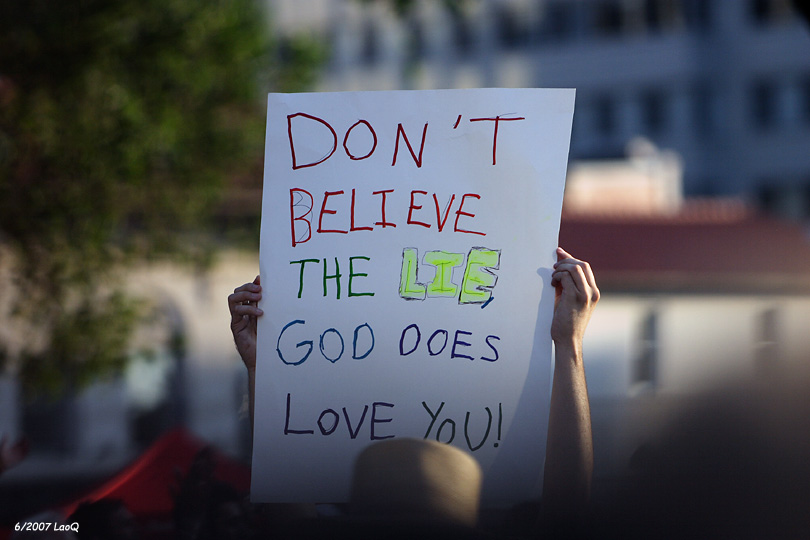 DON'T
BELIEVE
THE LIE,
GOD DOES
LOVE YOU!
6/2007 LaoQ